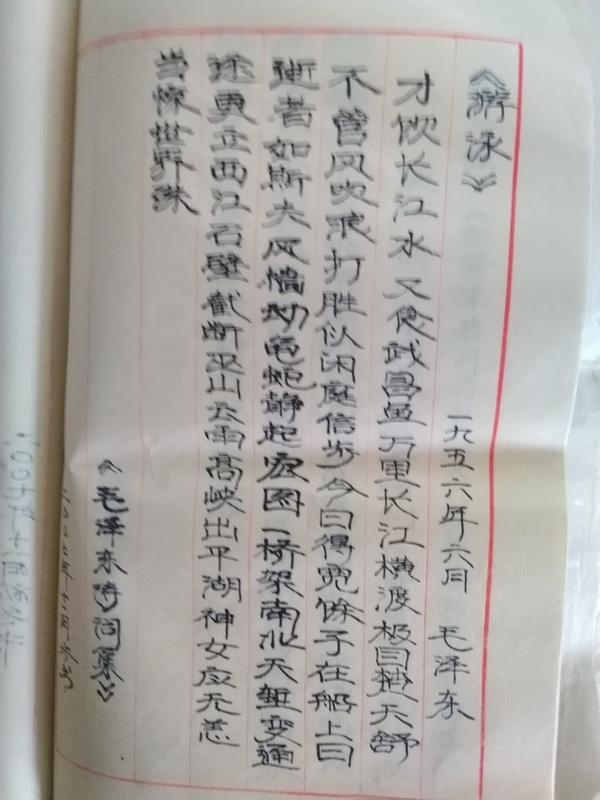 《游泳》
一九五六年六月 毛泽东
才饮长江水又食武昌鱼万里长江横渡极目楚天舒
不管风吹浪打胜似闲庭信步今日得宽馀子在船上曰
逝者如斯夫风樯动龟蛇静起宏图一桥架南北天堑变通
途更立西江石壁截断巫山云雨高峡出平湖神女应无恙
当惊世界殊
《毛泽东诗词集》
二〇〇七年十一月冬书